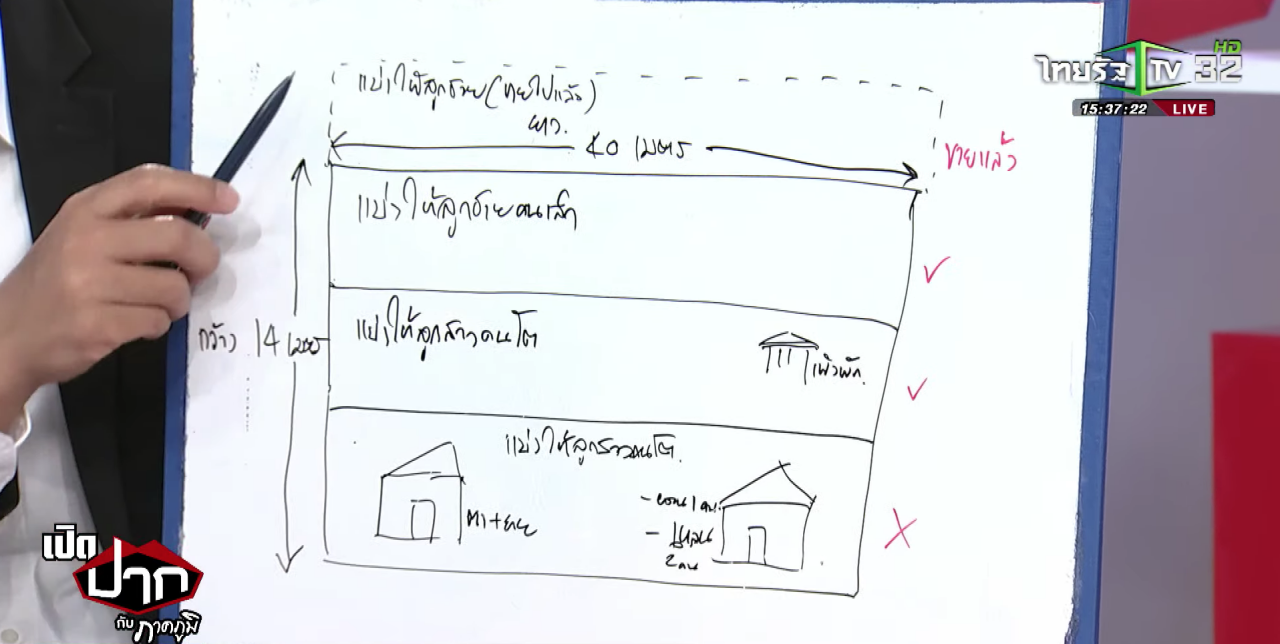 ไทยรัฐ TV 32 HD
15:37:22 LIVE
แบ่งให้ลูกชาย (ขายไปแล้ว)
ยาว.
40 เมตร
ขายแล้ว
แบ่งให้ลูกชายคนเล็ก
แบ่งให้ลูกสาวคนโต
กว้าง 14 เมตร
เพิงพัก.
แบ่งให้ลูกสาวคนโต.
ตา+ยาย
2 คน
เปิด
ปาก
กับ ภาคภูมิ